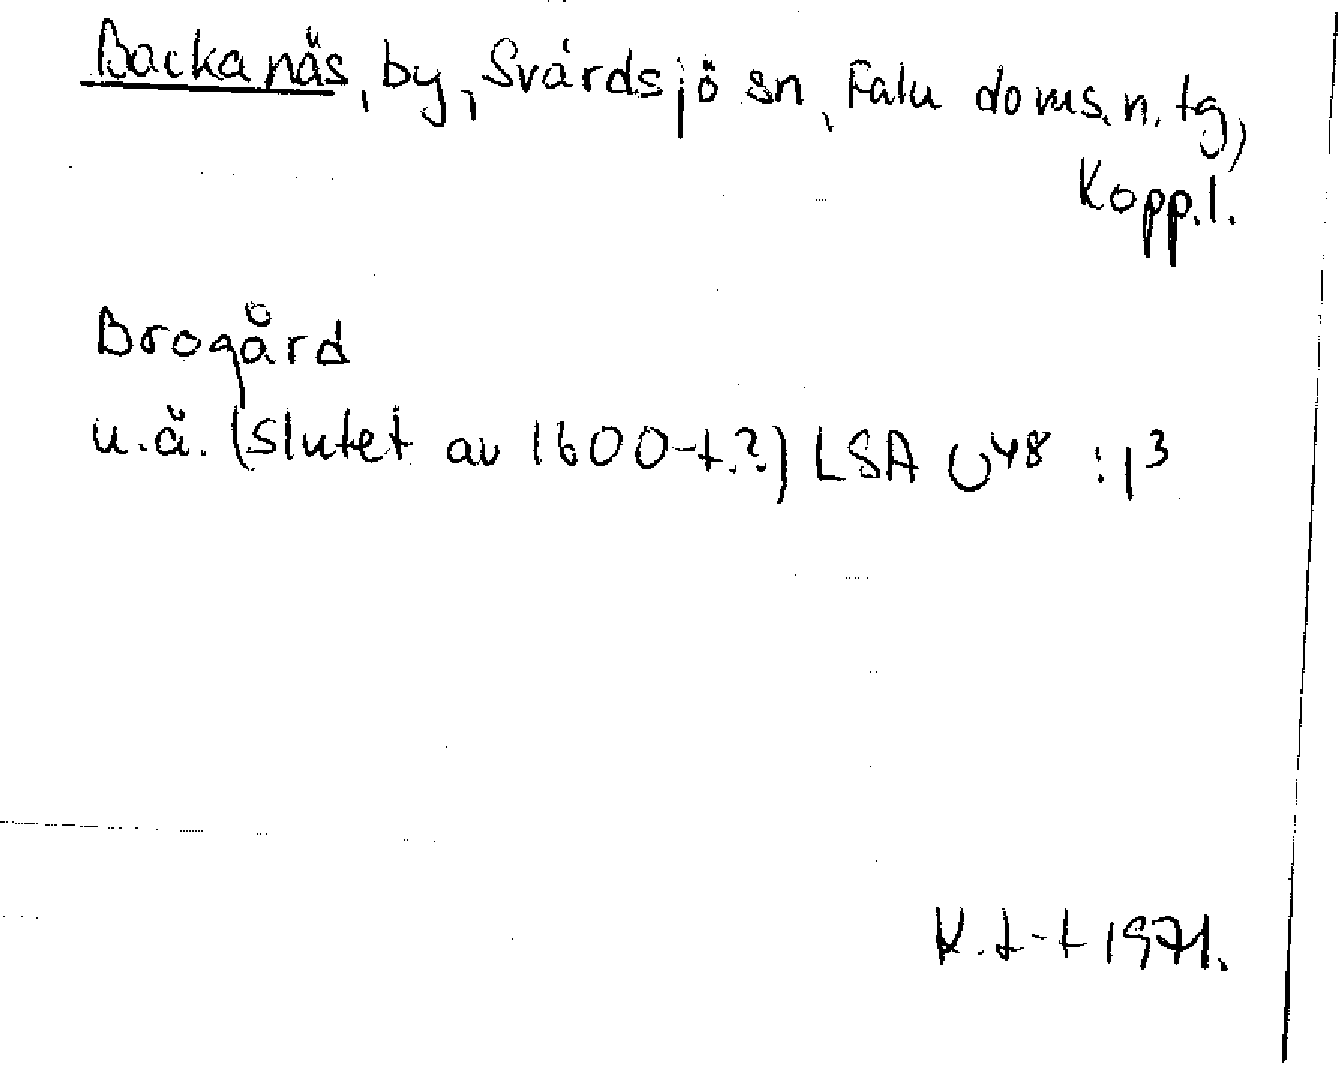 Backanäs, by, Svärdsjö sn, Falu doms.n. tg,
Kopp.l.
Brogård
u.å. (slutet av 1600-t.?) LSA U⁴⁸ :1³
K.t-t 1971.